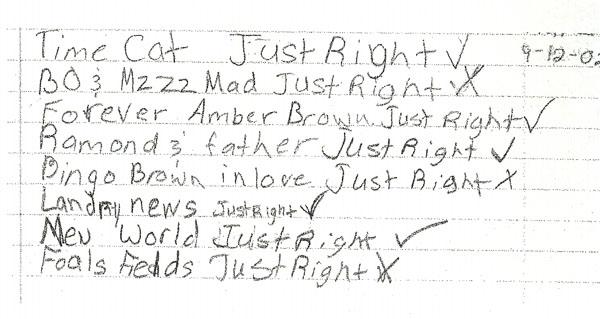 Time Cat Just Right ✓ 9-12-02
BO & MZZZ Mad Just Right X
Forever Amber Brown Just Right ✓
Ramond & father Just Right ✓
Bingo Brown in love Just Right X
Landry news Just Right ✓
Meu World Just Right ✓
Foals Fiedds Just Right X